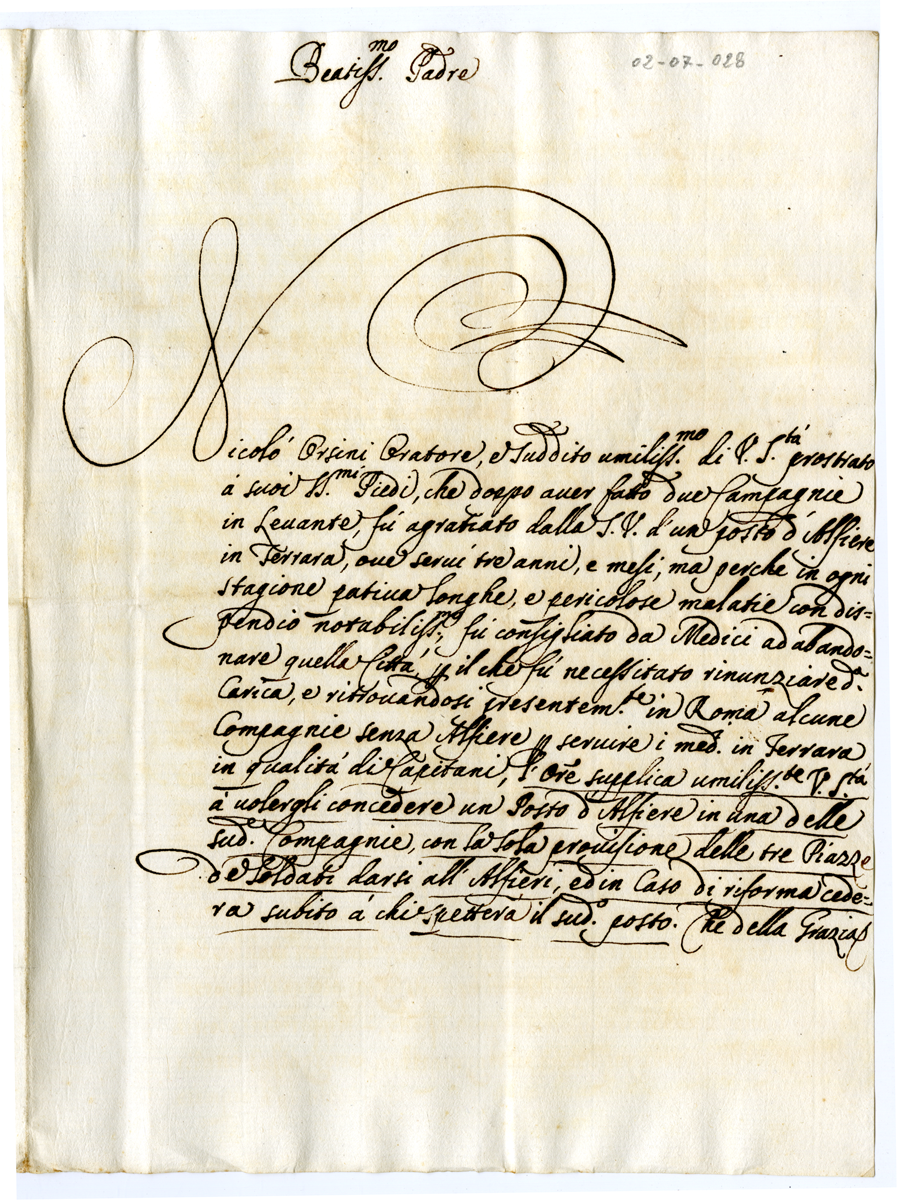 Beatiss.mo Padre
02-07-028
Nicolò Orsini Oratore, e Suddito umiliss.mo di V. S.tà prostrato
à suoi SS.mi Piedi, che doppo aver fatto due Campagnie
in Levante, fù agratiato dalla S. V. d'un posto d'Alfiere
in Ferrara, ove servì tre anni, e mesi; ma perche in ogni
stagione pativa longhe, e pericolose malatie con dis=
pendio notabiliss.mo, fù consigliato da Medici ad abando=
nare quella Città, p il che fù necessitato rinunziare d.a
Carica, e ritrovandosi presentem.te in Roma alcune
Compagnie senza Alfiere p servire i med. in Ferrara
in qualità di Capitani, l'Ore supplica umiliss.te V. S.tà
à volergli concedere un Posto d'Alfiere in una delle
sud.e Compagnie, con la sola provisione delle tre Piazze
de Soldati darsi all'Alfieri, ed in Caso di riforma cede=
rà subito à chi spetterà il sud.o posto. Che della Grazia